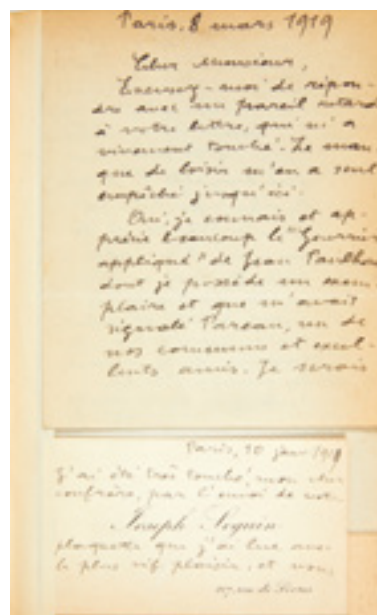 Paris, 8 mars 1919
Cher Monsieur,
Excusez-moi de répon-
dre avec un pareil retard
à votre lettre, qui m'a
vivement touché. Le man
que de loisir m'en a seul
empêché jusqu'ici.
Oui, je connais et ap-
précie beaucoup le "Guerrier
appliqué" de Jean Paulhan
dont je possède un exem
plaire et que m'avait
signalé un de
nos communs et excel-
lents amis. Je serais
Paris, 10 janv
J'ai été très touché, mon cher
confrère, par l'envoi de votre
Joseph
plaquette que j'ai lue avec
le plus vif plaisir, et vous
rue de